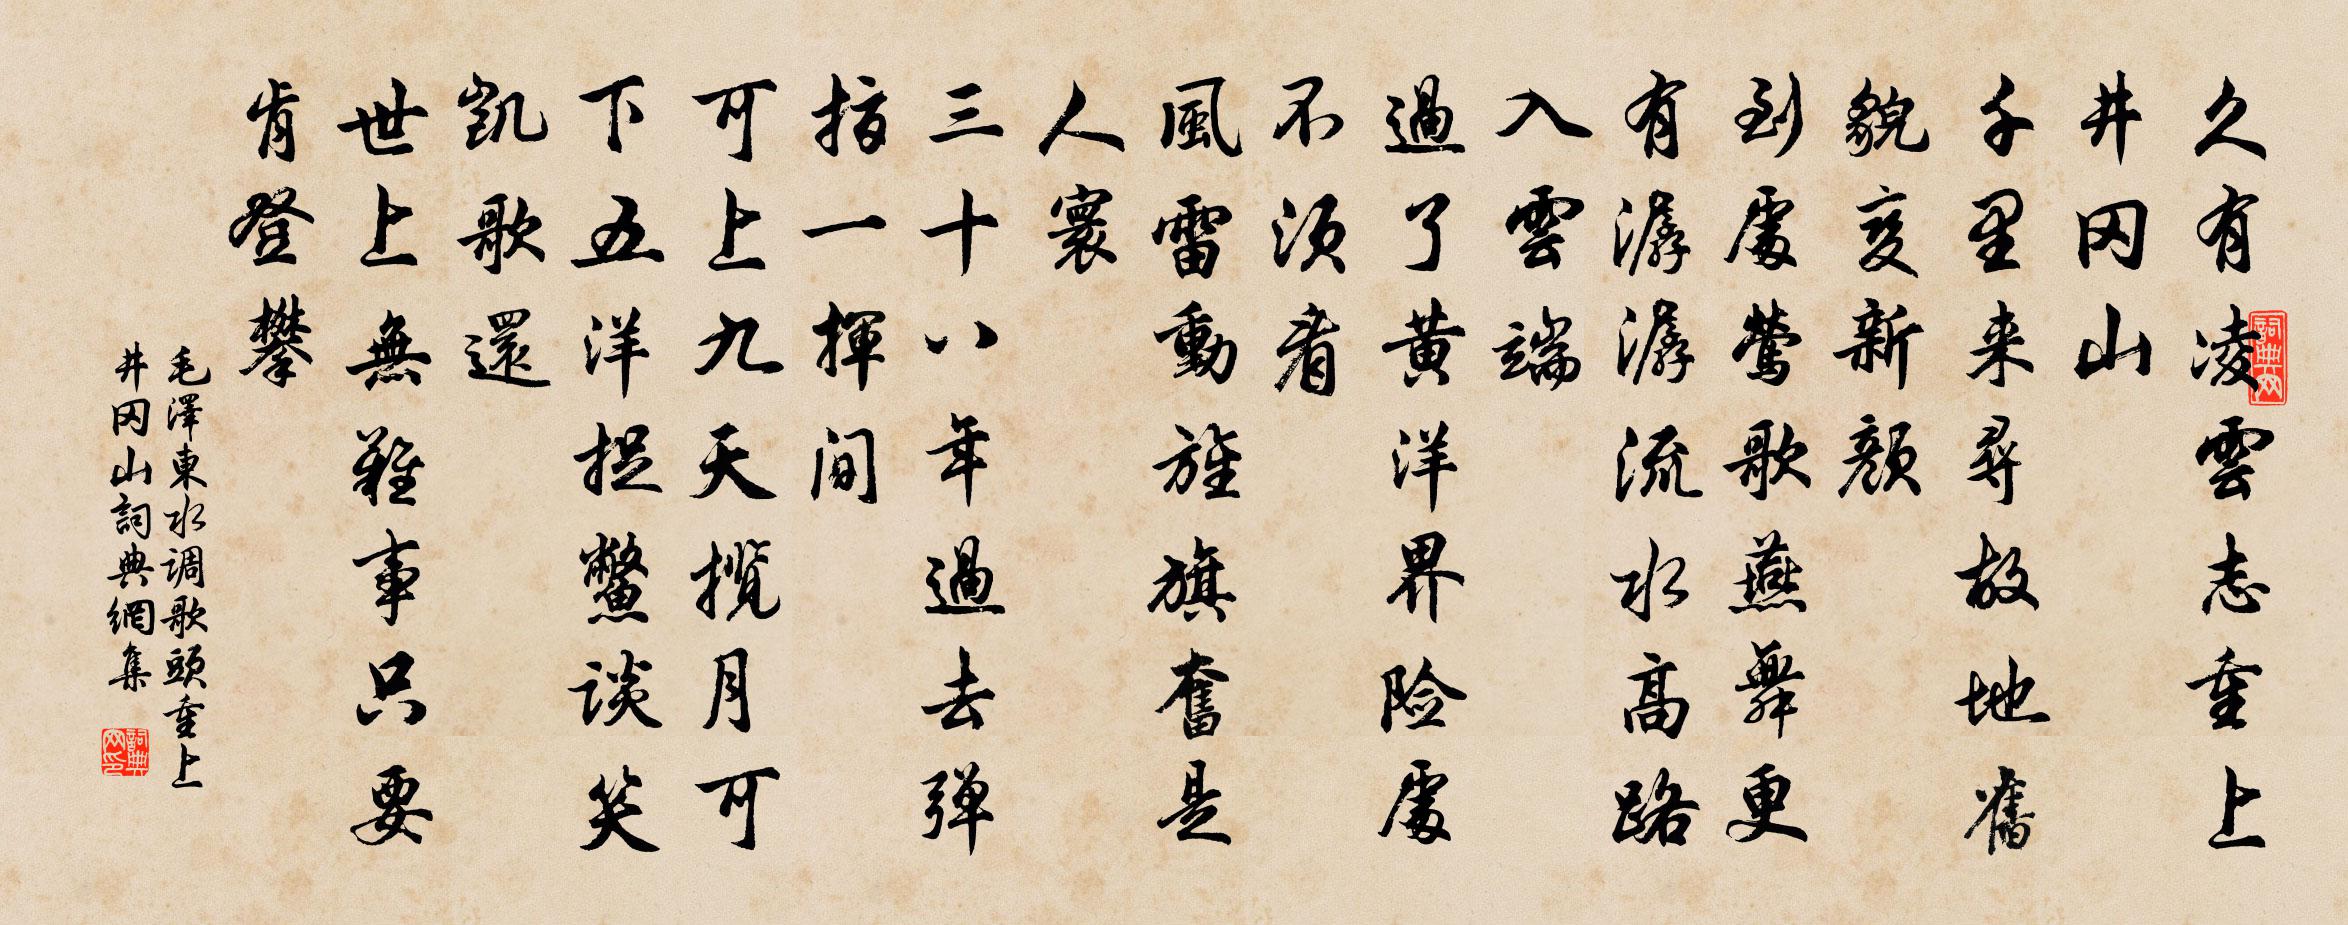 久有凌雲志重上
井冈山
千里来尋故地舊
貌变新颜
到處莺歌燕舞更
有潺潺流水高路
入雲端
過了黄洋界险處
不须看
風雷動旌旗奮是
人寰
三十八年過去弹
指一揮间
可上九天揽月可
下五洋捉鱉谈笑
凯歌還
世上無難事只要
肯登攀
毛澤東水调歌頭重上
井冈山詞典網集
詞典网
詞典网印